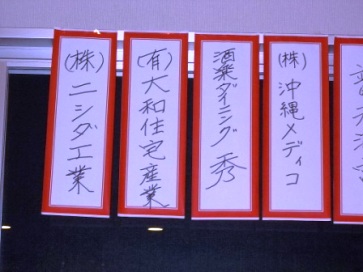 (株)ニシダ工業
(有)大和住宅産業
酒楽ダイニング 秀
(株)沖縄メディコ